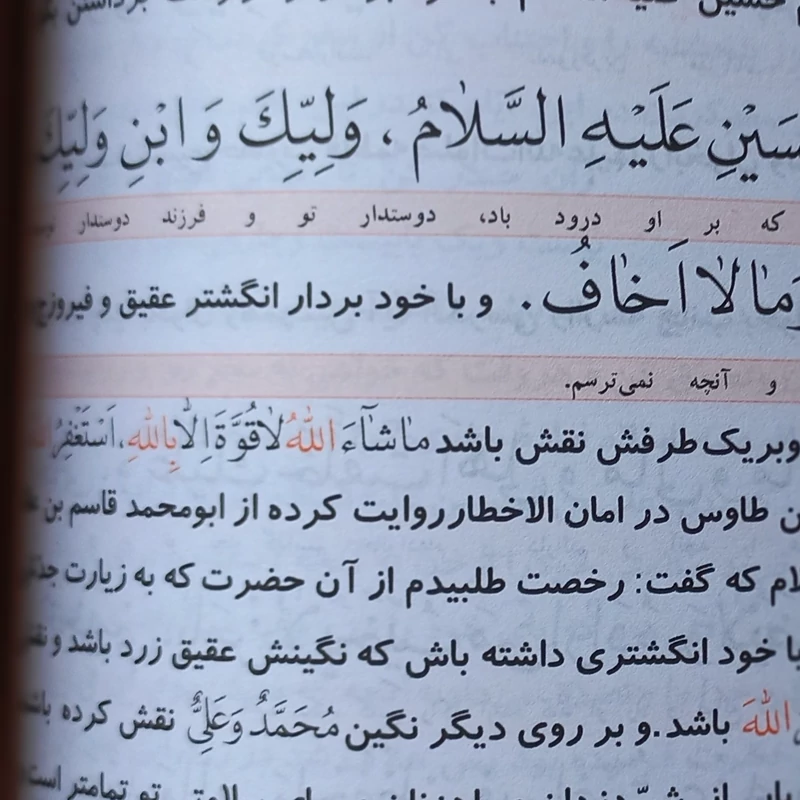 عَلَيْهِ السَّلامُ ، وَلِيِّكَ وَ ابْنِ وَلِيِّكَ
که بر او درود باد، دوستدار تو و فرزند دوستدار
وَمٰا لاٰ اَخٰافُ . و با خود بردار انگشتر عقیق و
و آنچه نمی‌ترسم.
وبر یک طرفش نقش باشد مٰا شٰآءَ اللهُ لاٰ قُوَّةَ اِلّٰا بِاللهِ، اَسْتَغْفِرُ
طاوس در امان الاخطار روایت کرده از ابومحمد قاسم بن
که گفت: رخصت طلبیدم از آن حضرت که به زیارت
با خود انگشتری داشته باش که نگینش عقیق زرد باشد و
اللهَ باشد. و بر روی دیگر نگین مُحَمَّدٌ وَعَلِیٌّ نقش کرده
تو تمامتر است